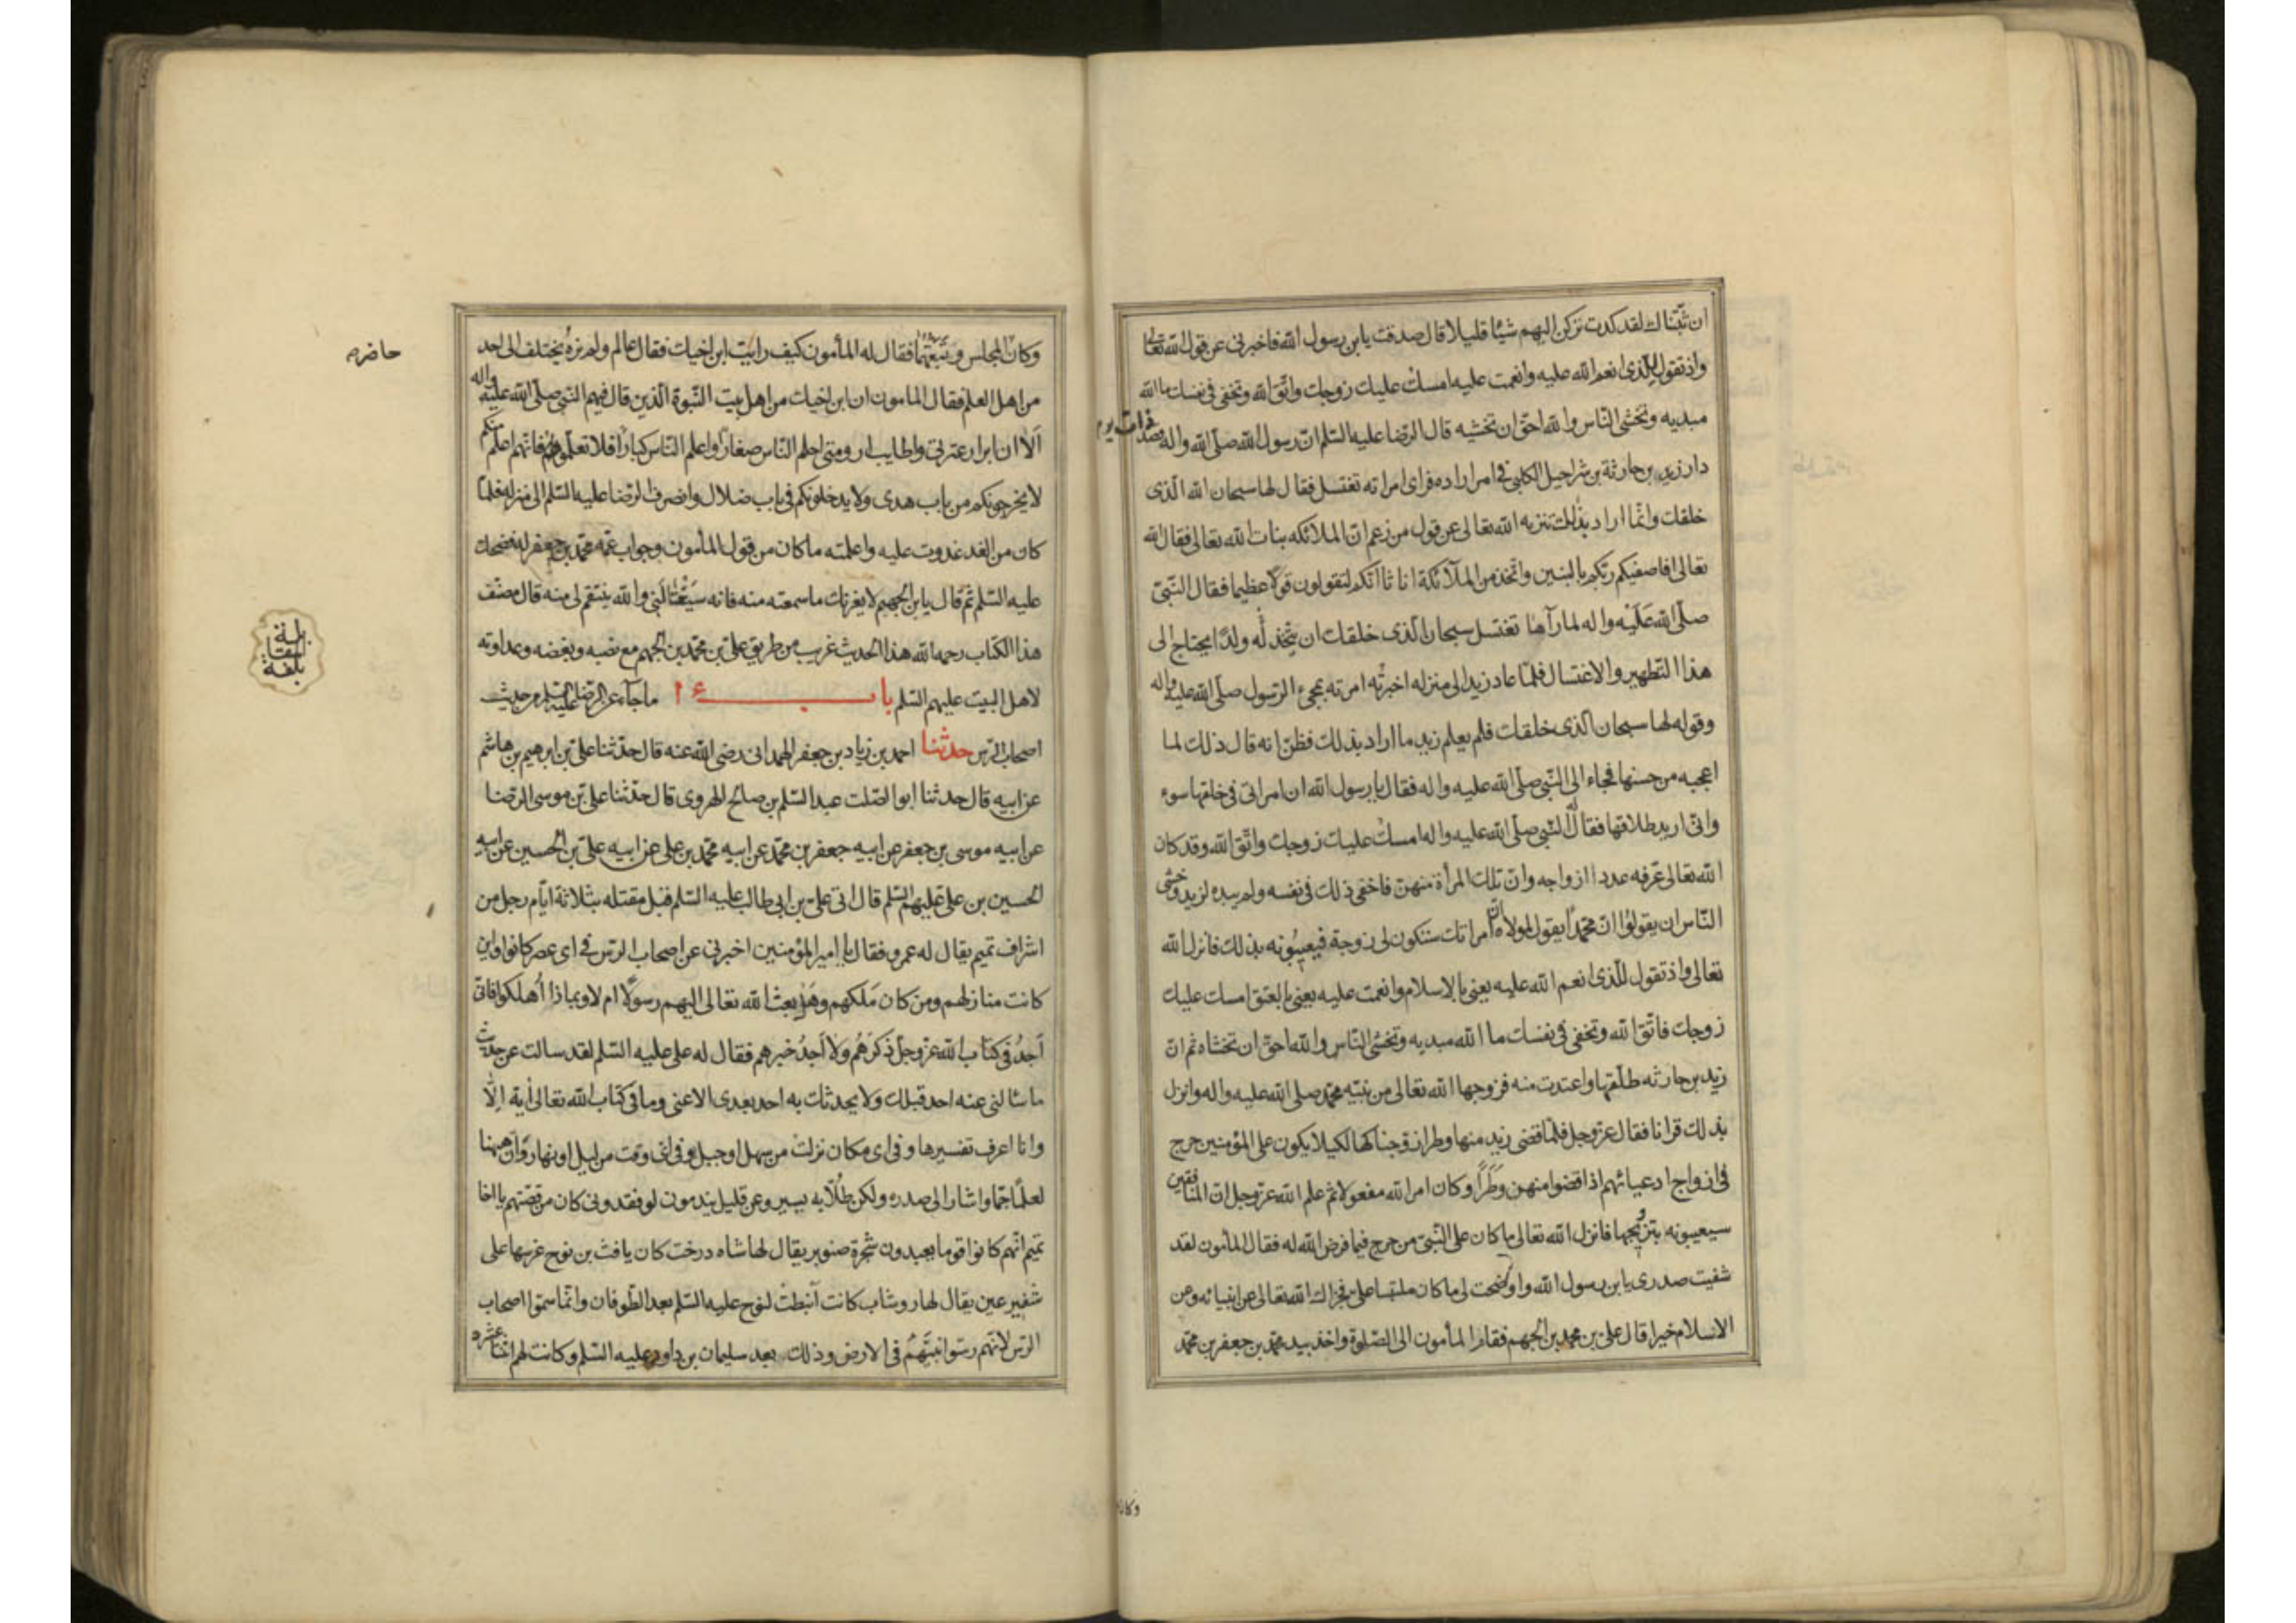 ان ثبّتناك لقد كدت تركن اليهم شيئا قليلا قال صدقت يابن رسول الله فاخبرنى عن قول الله تعالى
واذ تقول للذى انعم الله عليه وانعمت عليه امسك عليك زوجك واتّق الله وتخفى فى نفسك ما الله
مبديه وتخشى النّاس والله احقّ ان تخشيه قال الرّضا عليه السّلم انّ رسول الله صلّى الله واله قصد
دار زيد بن حارثة بن شراحيل الكلبى فى امر اراده فراى امراته تغتسل فقال لها سبحان الله الّذى
خلقك وانّما اراد بذلك تنزيه الله تعالى عن قول من زعم انّ الملائكه بنات الله تعالى فقال الله
تعالى افاصفيكم ربّكم بالبنين واتّخذ من الملآئكة اناثا انّكم لتقولون قولًا عظيما فقال النّبىّ
صلّى الله عَلَيْه واله لما رآها تغتسل سبحان الّذى خلقك ان يتّخذ لُه ولدًا يحتاج الى
هذا التّطهير والاغتسال فلمّا عاد زيد الى منزله اخبرتُه امرته بمجىء الرّسول صلّى الله عليه واله
وقوله لها سبحان الّذى خلقك فلم يعلم زيد ما اراد بذلك فظنّ انه قال ذلك لما
اعجبه من حسنها فجاء الى النّبى صلّى الله عليه واله فقال يا رسول الله ان امراتى فى خلقها سوء
وانّى اريد طلاقها فقال له النّبى صلّى الله عليه واله امسك عليك زوجك واتّق الله وقد كان
الله تعالى عرّفه عدد ازواجه وانّ تلك المرأة منهنّ فاخفى ذلك فى نفسه ولم يبده لزيد وخشى
النّاس ان يقولوُا انّ محمّدًا يقول لمولاه انّ امراتك ستكون لى زوجة فيعيبُونه بذلك فانزل الله
تعالى واذ تقول للّذى انعم الله عليه يعنى بالاسلام وانعمت عليه يعنى بالعتق امسك عليك
زوجك فاتّق الله وتخفى فى نفسك ما الله مبديه وتخشى النّاس والله احقّ ان تخشاه ثم انّ
زيد بن حارثه طلّقها واعتدت منه فزوجها الله تعالى من نبيّه محمّد صلى الله عليه واله وانزل
بذلك قرانا فقال عزّ وجل فلمّا قضى زيد منها وطرا زوّجناكها لكيلا يكون على المؤمنين حرج
فى ازواج ادعيائهم اذا قضوا منهن وَطَرًا وكان امر الله مفعولا ثم علم الله عزّ وجل انّ المنافقين
سيعيبونه بتزويجها فانزل الله تعالى ما كان على النّبىّ من حرج فيما فرض الله له فقال المأمون لقد
شفيت صدرى يا بن رسول الله واوضحت لى ما كان ملتبسا علىّ فجزاك الله تعالى عن انبيائه وعن
الاسلام خيرا قال علىّ بن محمد بن الجهم فقام المأمون الى الصّلوة واخذ بيد محمّد بن جعفر بن محمّد
وكان
وكان المجلس وتَبَعْتُهما فقال له المأمون كيف رايت ابن اخيك فقال عالم ولم نرهُ يختلف الى احد
حاضر م
من اهل العلم فقال المامون ان ابن اخيك من اهل بيت النّبوة الّذين قال فيهم النّبى صلّى الله عليه واله
اَلَا ان ابرار عترتى واطايب ارومتى احلم النّاس صغارًا واعلم النّاس كبارًا فلا تعلّموهم فانّهم اعلم منكم
لا يخرجونكم من باب هدى ولا يدخلونكم فى باب ضلال وانصرف الرّضا عليه السّلم الى منزله فلمّا
كان من الغد غدوت عليه واعلمته ما كان من قول المأمون وجواب عمّه محمّد بن جعفر له فضحك
عليه السّلم ثم قال يا بن الجهم لا يغرنّك ما سمعته منه فانه سَيَغْتَالُنى والله ينتقم لى منه قال مصنّف
هذا الكتاب رحمه الله هذا الحديث غريب من طريق علىّ بن محمّد بن الجهم مع نصبه وبغضه وعداوته
لاهل البيت عليهم السّلم باب ١٤ ماجآء عن الرّضا عليه السّلم من حديث
اصحاب الرّس حدثنا احمد بن زياد بن جعفر الهمدانى رضى الله عنه قال حدّثنا علىّ بن ابرهيم بن هاشم
عن ابيه قال حدثنا ابو الصّلت عبد السّلم بن صالح الهروى قال حدّثنا علىّ بن موسى الرضا
عن ابيه موسى بن جعفر عن ابيه جعفر بن محمّد عن ابيه محمّد بن على عن ابيه علىّ بن الحسين عن ابيه
الحسين بن علىّ عليهم السّلم قال اتى علىّ بن ابى طالب عليه السّلم قبل مقتله بثلاثة ايّام رجل من
اشراف تميم يقال له عمرو فقال يا امير المؤمنين اخبرنى عن اصحاب الرّس فى اى عصر كانوا واين
كانت منازلهم ومن كان مَلكهم وهَل بعث الله تعالى اليهم رسولًا ام لا وبماذا أُهلكوا فانّى
اَجدُ فى كتاب الله عزّ وجلّ ذكرَهُم ولا اَجدُ خبرهم فقال له على عليه السّلم لقد سالت عن حديث
ما سألنى عنه احد قبلك ولا يحدثك به احد بعدى الا عنى وما فى كتاب الله تعالى اٰية الّا
وانا اعرف تفسيرها وفى اى مكان نزلت من سهل او جبل وفى اىّ وقت من ليل او نهار وانّ هيهنا
لعلمًا جمّا واشار الى صدره ولكن طُلّابه يسير وعن قليل يندمون لو فقدونى كان من قصّتهم يا اخا
تميم انّهم كانوا قوما يعبدون شجرة صنوبر يقال لها شاه درخت كان يافث بن نوح غرسها على
شفير عين يقال لها روشاب كانت اُنبطت لنوح عليه السّلم بعد الطّوفان وانّما سمّوا اصحاب
الرّس لانّهم رسّوا نبيَّهُم فى الارض وذلك بعد سليمان بن داود عليه السّلم وكانت لهم اثنتا عشره